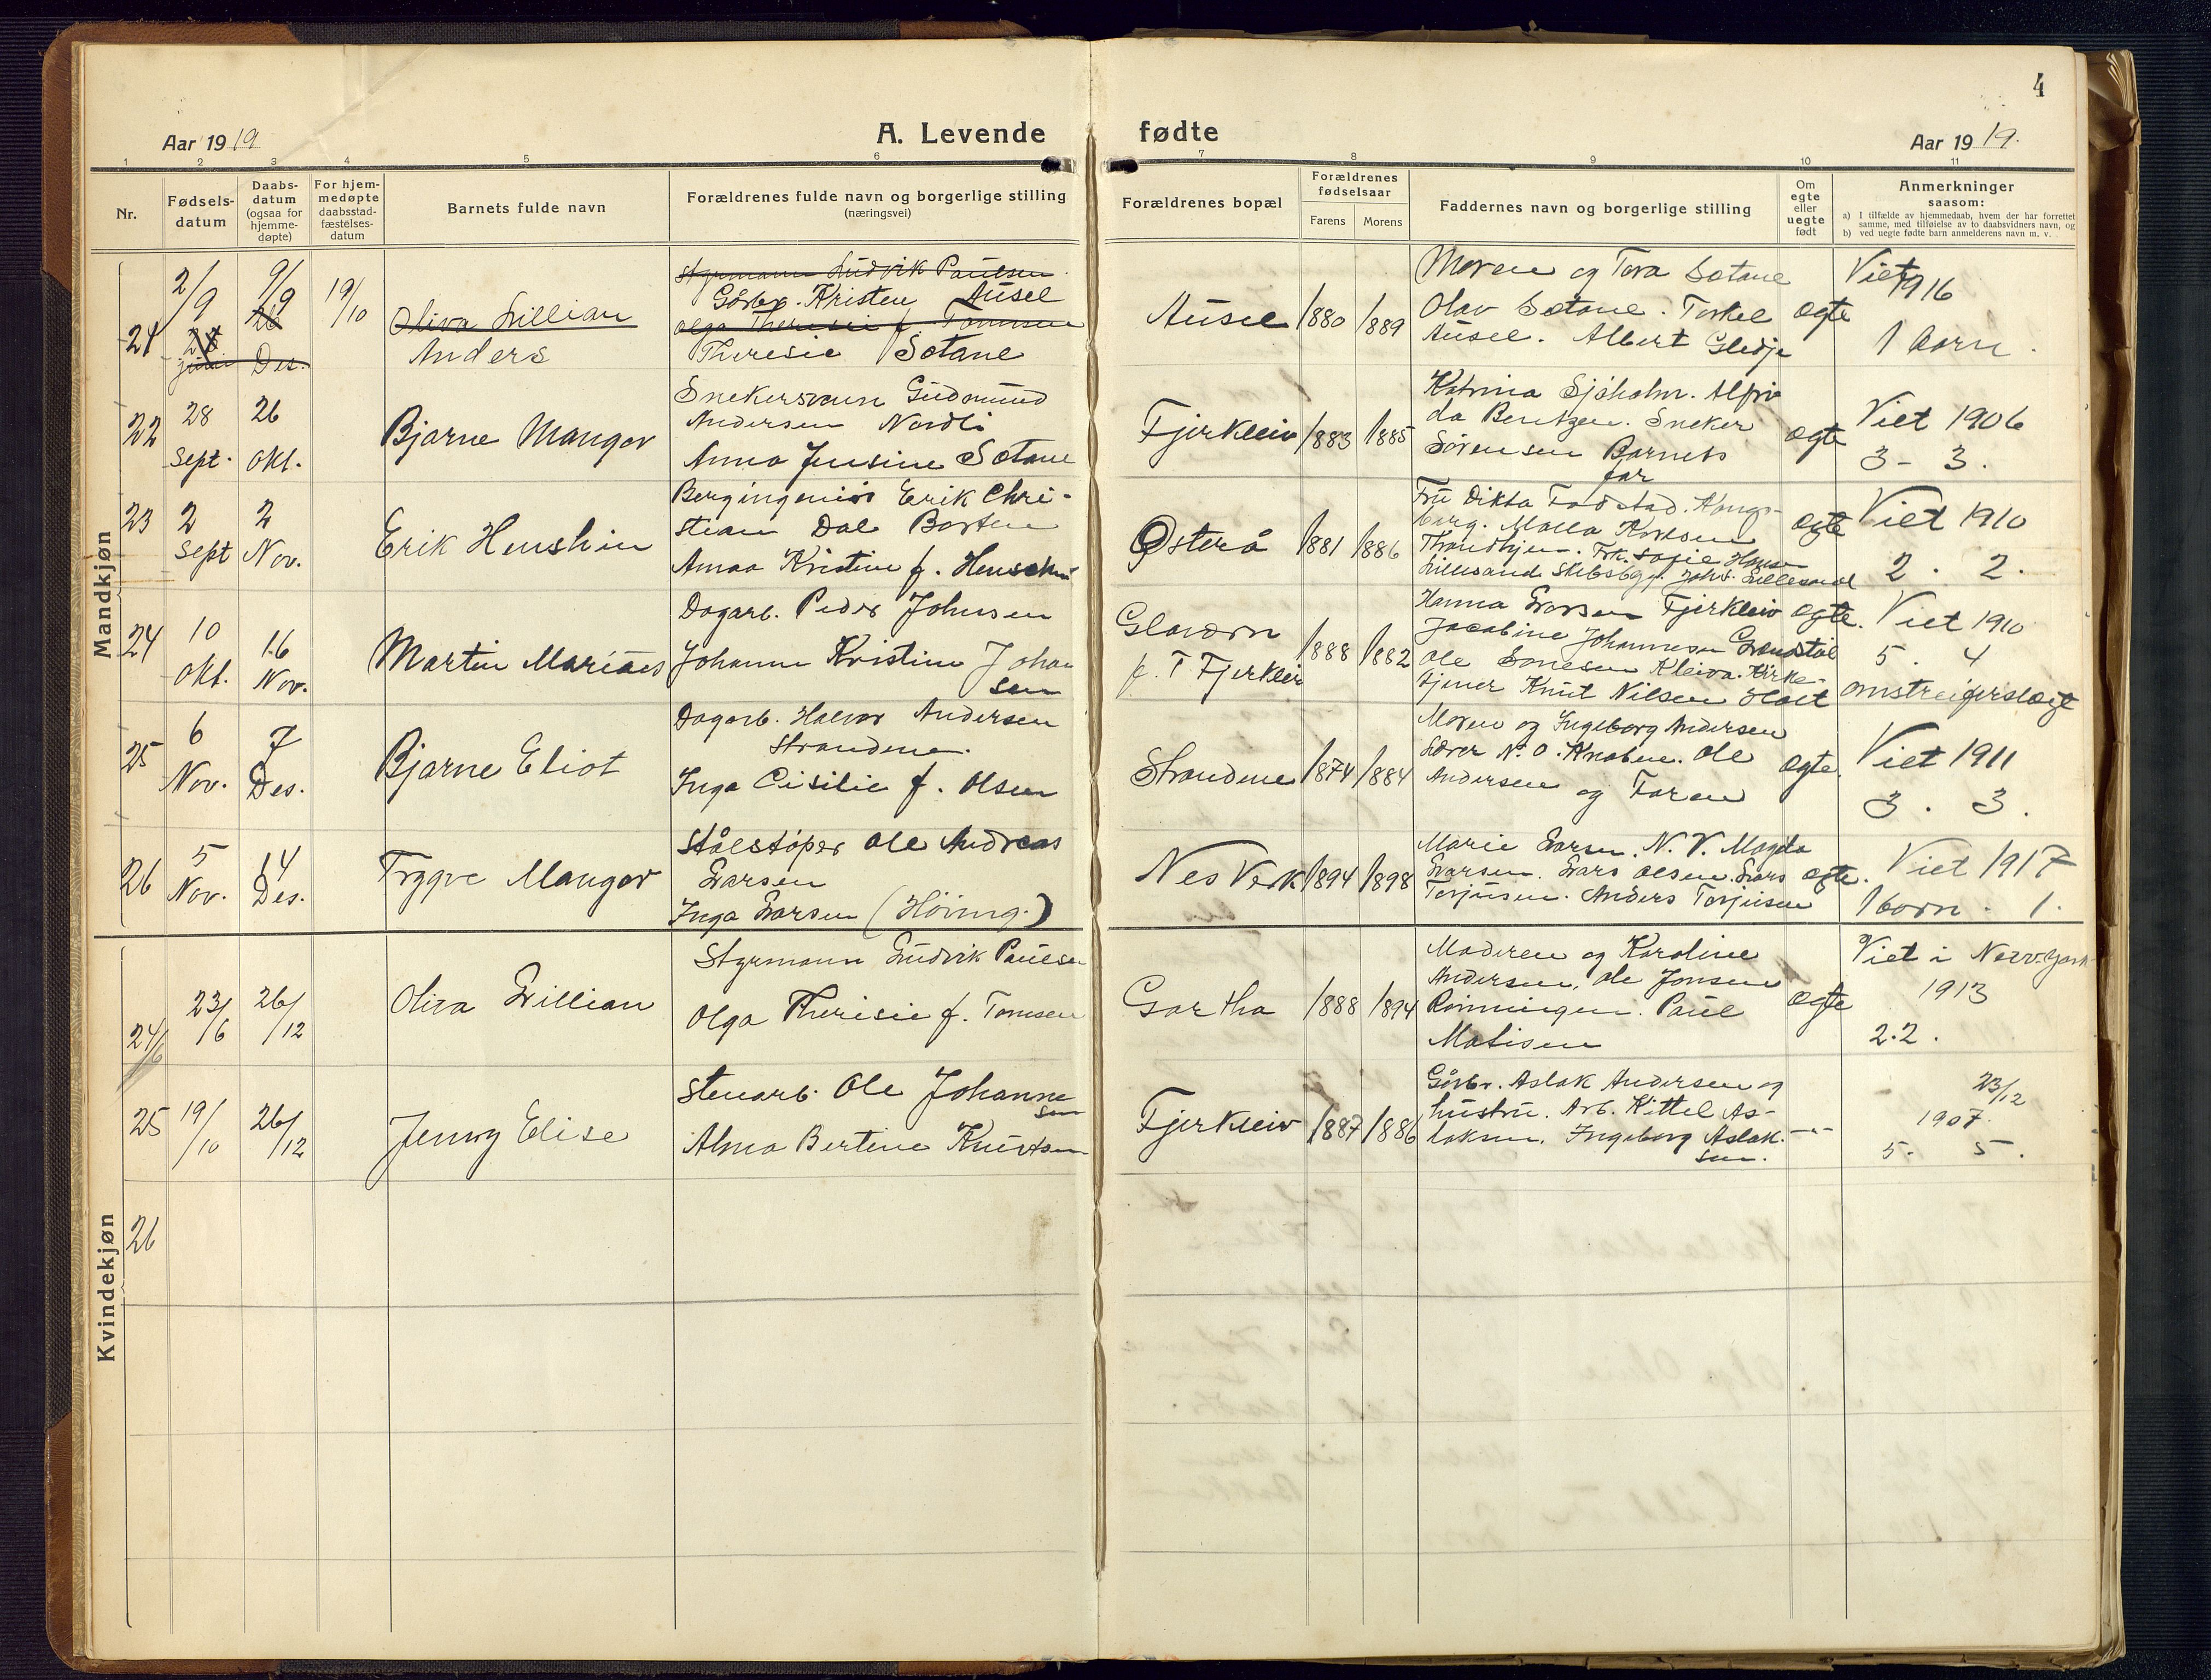 4
Aar 1919
A. Levende
fødte
Aar 1919.
1 2 3 4 5 6 7 8 9 10 11
Nr.
Fødsels-
datum
Daabs-
datum
(ogsaa for
hjemme-
døpte)
For hjem-
medøpte
daabsstad-
fæstelses-
datum
Barnets fulde navn
Forældrenes fulde navn og borgerlige stilling
(næringsvei)
Forældrenes bopæl
Forældrenes
fødselsaar
Farens
Morens
Faddernes navn og borgerlige stilling
Om
egte
eller
uegte
født
Anmerkninger
saasom:
a) I tilfælde av hjemmedaab, hvem der har forrettet
samme, med tilføielse av to daabsvidners navn, og
b) ved uegte fødte barn anmelderens navn m. v.
Mandkjøn
21
2/9
9/9
19/10
26
juni
Des.
Oliva Lillian
Anders
Styrmann Ludvik Paulsen
Gårbr. Kristen Ausel
Olga Theresie f. Tommsen
Theresie Sotane
Ausel
1880
1889
Moren og Tora Sotane
Olav Sotane. Torkel
Ausel. Albert Gledje
egte
Viet 1916
1 barn.
22
28
Sept.
26
Okt.
Bjarne Mangor
Snekersvenn Gudmund
Andersen Nordli
Anna Jensine Sotane
Fjerkleiv
1883
1885
Katrina Sjøholm. Alfri
da Berntzen. Sneker
Sørensen Barnets
far
egte
Viet 1906
3 - 3.
23
2
Sept
2
Nov.
Erik Henshin
Bergingeniør Erik Chri-
stian Dal Borten
Anna Kristine f. Henschin
Østerå
1881
1886
Fru Dikta Fodstad. Kongs-
berg. Molla
Throndhjem. Frk. Sofie Hansen
Lillesand Skibsbygg. Lillesand
egte
Viet 1910
2. 2.
24
10
Okt.
16
Nov.
Martin Marius
Dagarb. Peder Johnsen
Johanne Kristine Johan
sen
Glaværn
p. T Fjerkleiv
1888
1882
Hanna Larsen Fjerkleiv
Jacobine Johannesen
Ole Kleiva. Kirke-
tjener Knut Nilsen Holt
egte.
Viet 1910
5. 4
omstreiferslægt
25
6
Nov.
7
Des.
Bjarne Eliot
Dagarb. Halvor Andersen
Strandene.
Inga Cisilie f. Olsen
Strandene
1874
1884
Moren og Ingeborg Andersen
Lærer N. O. Knaben. Ole
Andersen og Faren
egte.
Viet 1911
3. 3.
26
5
Nov.
14
Des.
Trygve Mangor
Stålstøper Ole Andreas
Larsen
Inga Larsen (Høinng.)
Nes Verk
1894
1898
Marie Larsen. N. V. Magda
Larsen. Lars Olsen. Lars
Torjusen. Anders Torjusen
egte.
Viet 1917
1 barn. 1.
Kvindekjøn
24
23/6
26/12
Oliva Lillian
Styrmann Ludvik Paulsen
Olga Therisie f. Tomsen
Gartha
1888
1894
Moderen og Karoline
Andersen. Ole Jonsen
Rønningen. Paul
Matisen
egte
Viet i New-York
1913
2. 2.
25
19/10
26/12
Jenny Elise
Stenarb. Ole Johanne
sen
Alma Bertine Knutsen
Fjerkleiv
1887
1886
Gårbr. Aslak Andersen og
hustru. Arb. Kittel As-
laksen. Ingeborg Aslak-
sen.
-"-
23/12
1907.
5. 5.
26